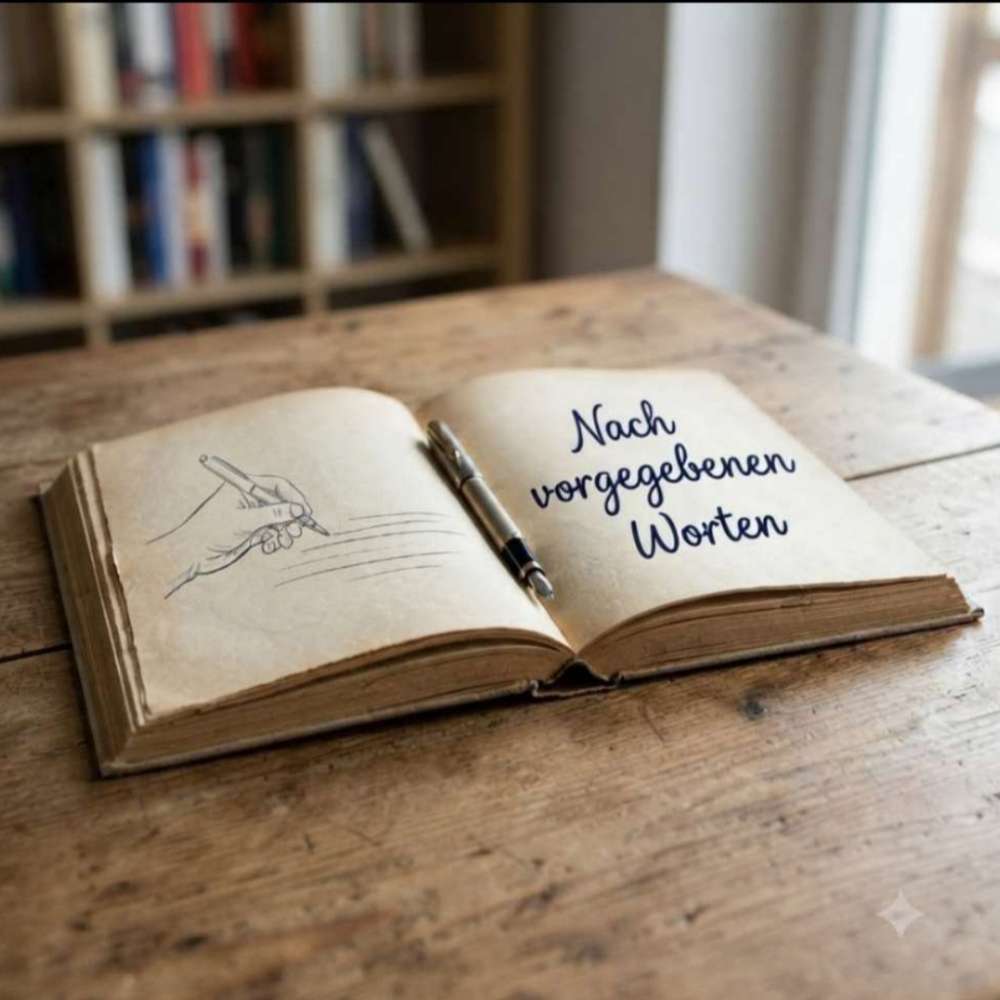 Nach
vorgegebenen
Worten